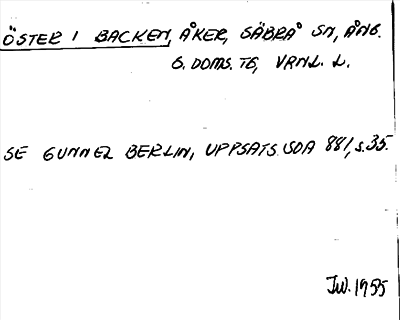 ÖSTER I BACKEN, ÅKER, SÄBRÅ SN, ÅNG.
G. DOMS. TG, VRNL. L.
SE GUNNEL BERLIN, UPPSATS SOA 881, s. 35.
JW. 1955